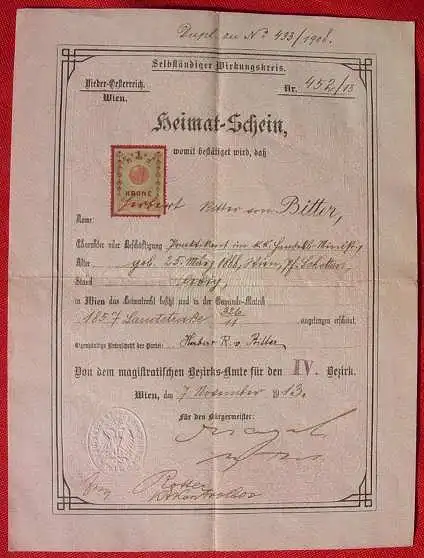 Dupl. zu No 433/1908.
Selbständiger Wirkungskreis.
Nieder-Oesterreich.
Wien.
Nr. 452/13
Heimat-Schein,
womit bestätiget wird, daß
1
KRONE
Herbert Ritter von Bitter,
Name:
Charakter oder Beschäftigung Praktikant im k.k. Handels-Minist.
Alter geb. 25. März 1888, Wien, Pf. Schotten
Stand ledig
in Wien das Heimatrecht besitzt und in der Gemeinde-Matrik
1857 Landstraße 326/11 eingetragen erscheint.
Eigenhändige Unterschrift der Partei: Herbert R. v. Bitter
Von dem magistratischen Bezirks-Amte für den IV. Bezirk.
Wien, am 7. November 1913.
Für den Bürgermeister: